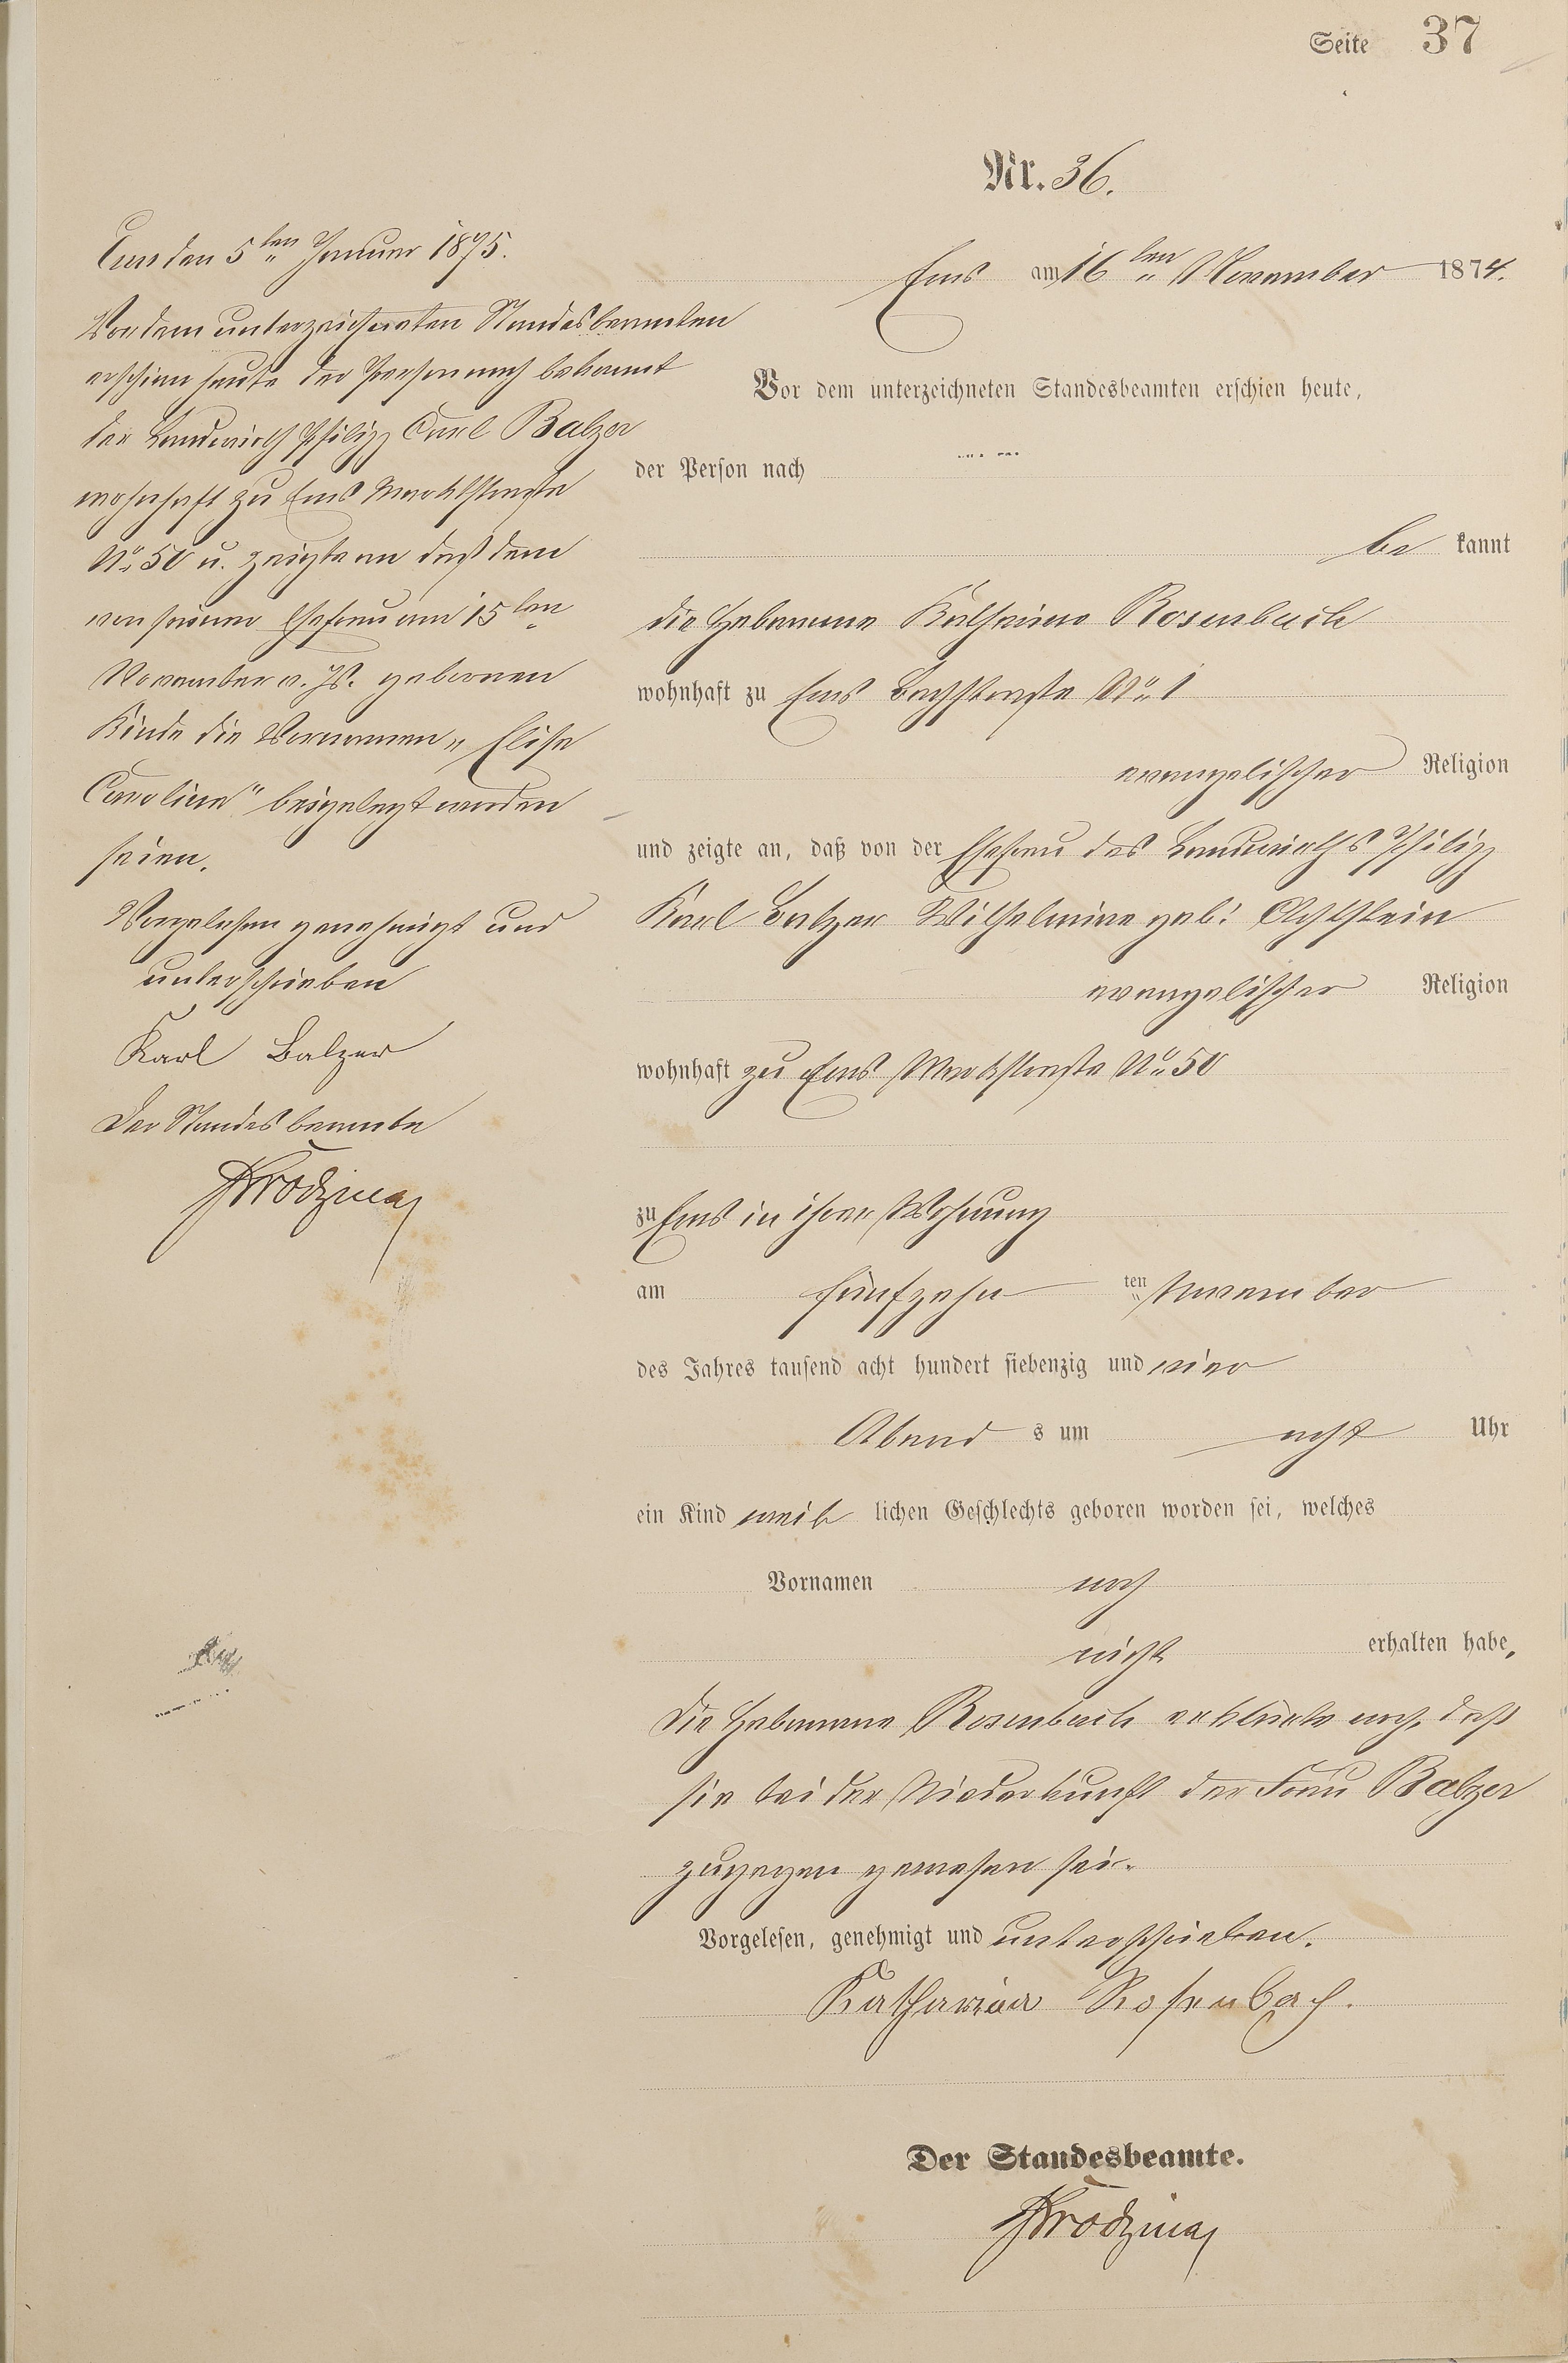 Seite 37
Nr. 36.
Ems am 16ten November 1874.
Vor dem unterzeichneten Standesbeamten erschien heute,
der Person nach
be kannt
die Hebamme Katharina Rosenbach
wohnhaft zu Ems Bachstraße No. 1
evangelischer Religion
und zeigte an, daß von der Ehefrau des Landwirths Philipp
Karl Balzer Wilhelmine geb: Achtstein
evangelischer Religion
wohnhaft zu Ems Marktstraße No. 50
zu Ems in ihrer Wohnung
am fünfzehn ten November
des Jahres tausend acht hundert siebenzig und vier
Abend s um acht Uhr
ein Kind weib lichen Geschlechts geboren worden sei, welches
Vornamen noch
nicht erhalten habe.
Die Hebamme Rosenbach erklärte noch, daß
sie bei der Niederkunft der Frau Balzer
zugegen gewesen sei.
Vorgelesen, genehmigt und unterschrieben.
Katharina Rosenbach.
Der Standesbeamte.
Ems den 5ten Januar 1875.
Vor dem unterzeichneten Standesbeamten
erschien heute der Person nach bekannt
der Landwirth Philipp Carl Balzer
wohnhaft zu Ems Marktstraße
No. 50 u. zeigte an daß dem
von seiner Ehefrau am 15ten
November v. Js. gebornen
Kinde die Vornamen „Elise
Caroline" beigelegt worden
seien.
Vorgelesen genehmigt und
unterschrieben
Karl Balzer
Der Standesbeamte